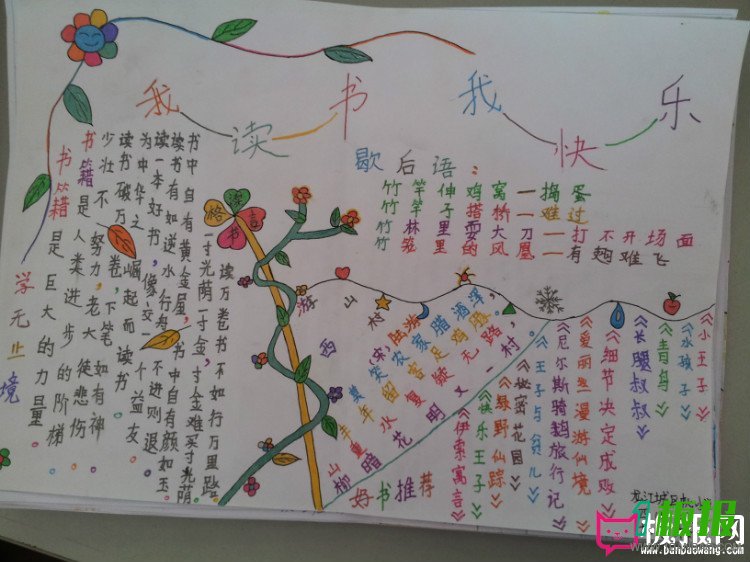 我读书 我快乐
歇后语:
竹竿伸鸡窝一捣蛋
竹子搭桥一难过
竹林里耍大刀一打不开场面
竹笼里的
一有
难飞
读书
格言
学无止境
书籍是巨大的力量。
书籍是人类进步的阶梯。
少壮不努力,老大徒悲伤
读书破万卷,下笔如有神
为中华之崛起而读书
读一本好书,像交一个益友。
读书有如逆水行舟,不进则退
书中自有黄金屋,书中自有颜如玉
一寸光荫一寸金,寸金难买寸光荫。
读万卷书不如行万里路
游山西村
(宋)陆游
莫笑农家腊酒浑,
丰年留客足鸡豚。
山重水复疑无路,
柳暗花明又一村。
好书推荐
《伊索寓言》
《快乐王子》
《绿野仙踪》
《秘密花园》
《王子与贫儿》
《尼尔斯骑鹅旅行记》
《爱丽丝漫游仙境》
《细节决定成败》
《长腿叔叔》
《青鸟》
《水孩子》
《小王子》
板报网
www.banbaowang.com